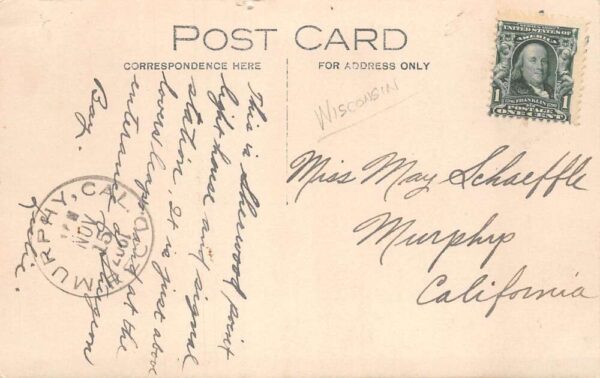 POST CARD
CORRESPONDENCE HERE
FOR ADDRESS ONLY
This is Sherwood point
light house and signal
station. It is just above
lovers leap and at the
entrance of Sturgeon
Bay.
WISCONSIN
UNITED STATES OF AMERICA
FRANKLIN
1 1
POSTAGE
ONE CENT
Miss May Schaeffle
Murphy
California
MURPHY, CAL.
NOV